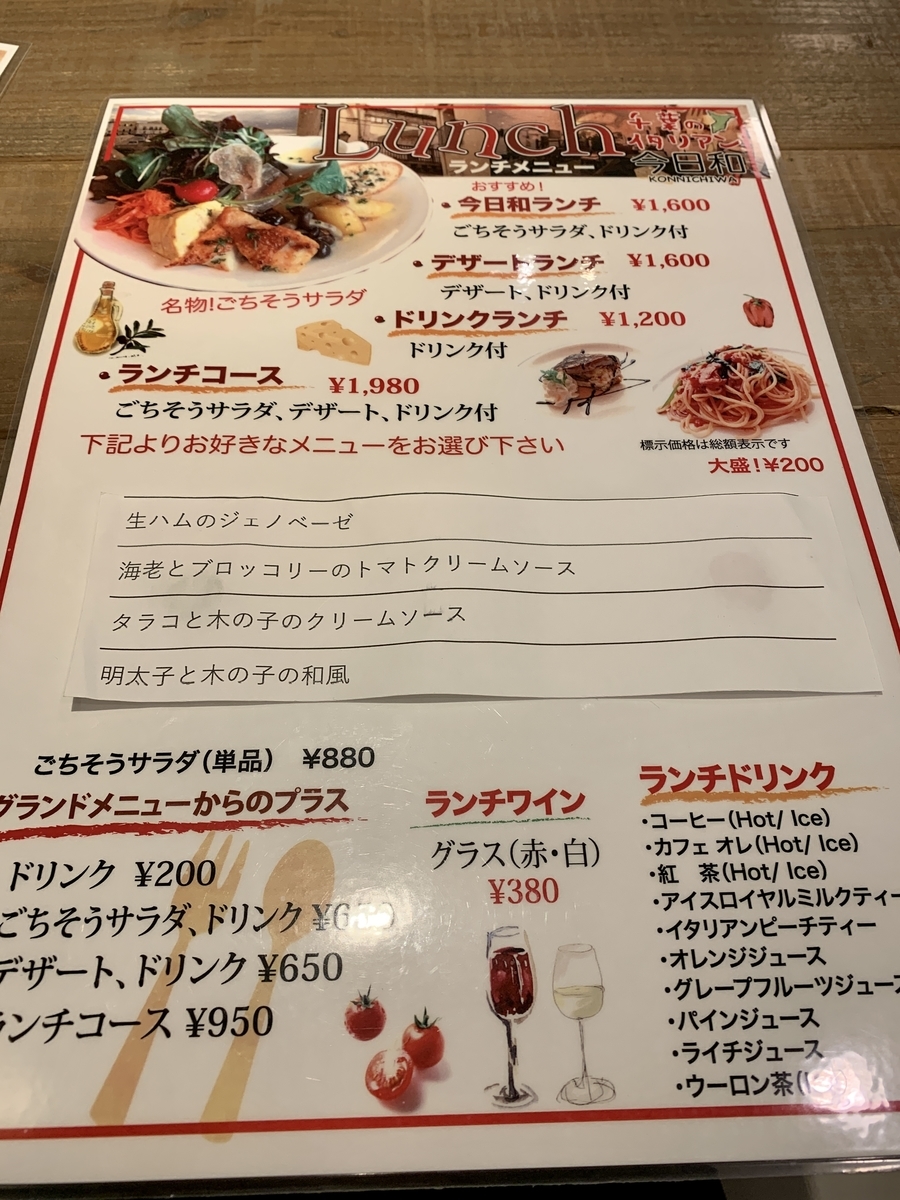 Lunch
ランチメニュー
千葉の
イタリアン
今日和
KONNICHIWA
おすすめ！
・今日和ランチ ¥1,600
ごちそうサラダ、ドリンク付
・デザートランチ ¥1,600
デザート、ドリンク付
名物!ごちそうサラダ
・ドリンクランチ ¥1,200
ドリンク付
・ランチコース ¥1,980
ごちそうサラダ、デザート、ドリンク付
下記よりお好きなメニューをお選び下さい
標示価格は総額表示です
大盛！¥200
生ハムのジェノベーゼ
海老とブロッコリーのトマトクリームソース
タラコと木の子のクリームソース
明太子と木の子の和風
ごちそうサラダ（単品） ¥880
グランドメニューからのプラス
ドリンク ¥200
ごちそうサラダ、ドリンク
デザート、ドリンク ¥650
ランチコース ¥950
ランチワイン
グラス（赤・白）
¥380
ランチドリンク
・コーヒー（Hot/ Ice）
・カフェ オレ（Hot/ Ice）
・紅 茶（Hot/ Ice）
・アイスロイヤルミルクティー
・イタリアンピーチティー
・オレンジジュース
・グレープフルーツジュース
・パインジュース
・ライチジュース
・ウーロン茶